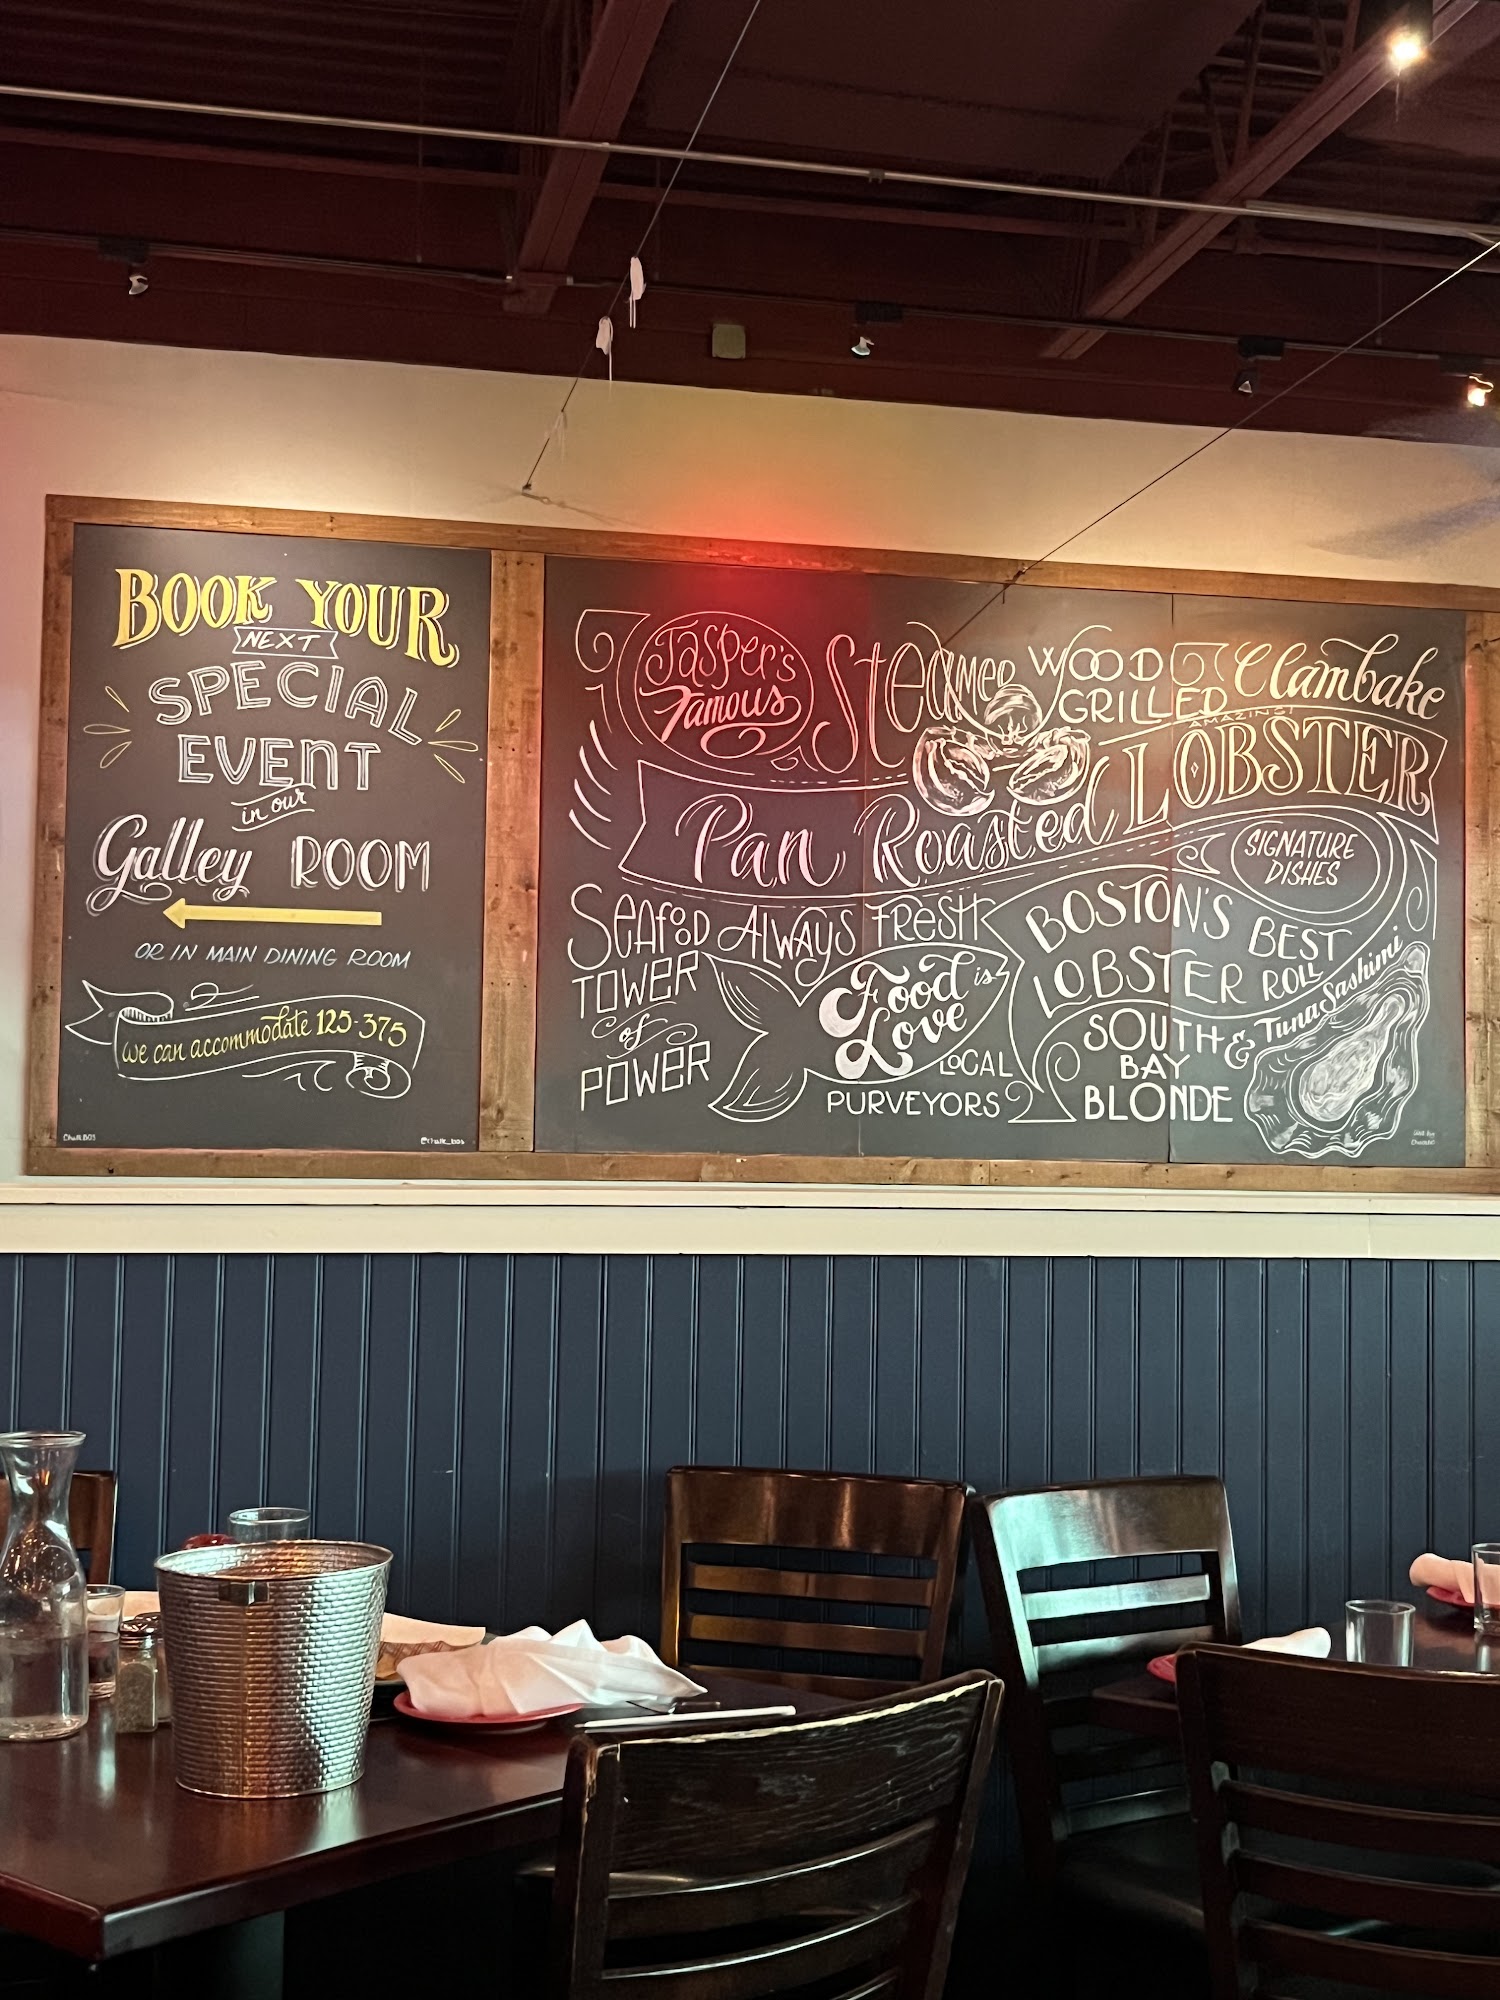 BOOK YOUR
NEXT
SPECIAL
EVENT
in our
Galley ROOM
OR IN MAIN DINING ROOM
we can accommodate 125-375
ChalkBOS
@chalk_bos
Jasper's
Famous
Steamer
WOOD
GRILLED
Clambake
AMAZING!
LOBSTER
Pan Roasted
SIGNATURE
DISHES
SEAFOOD ALWAYS FRESH
TOWER
of
POWER
Food is
Love
LOCAL
PURVEYORS
BOSTON'S BEST
LOBSTER ROLL
SOUTH
BAY
BLONDE
& Tuna Sashimi